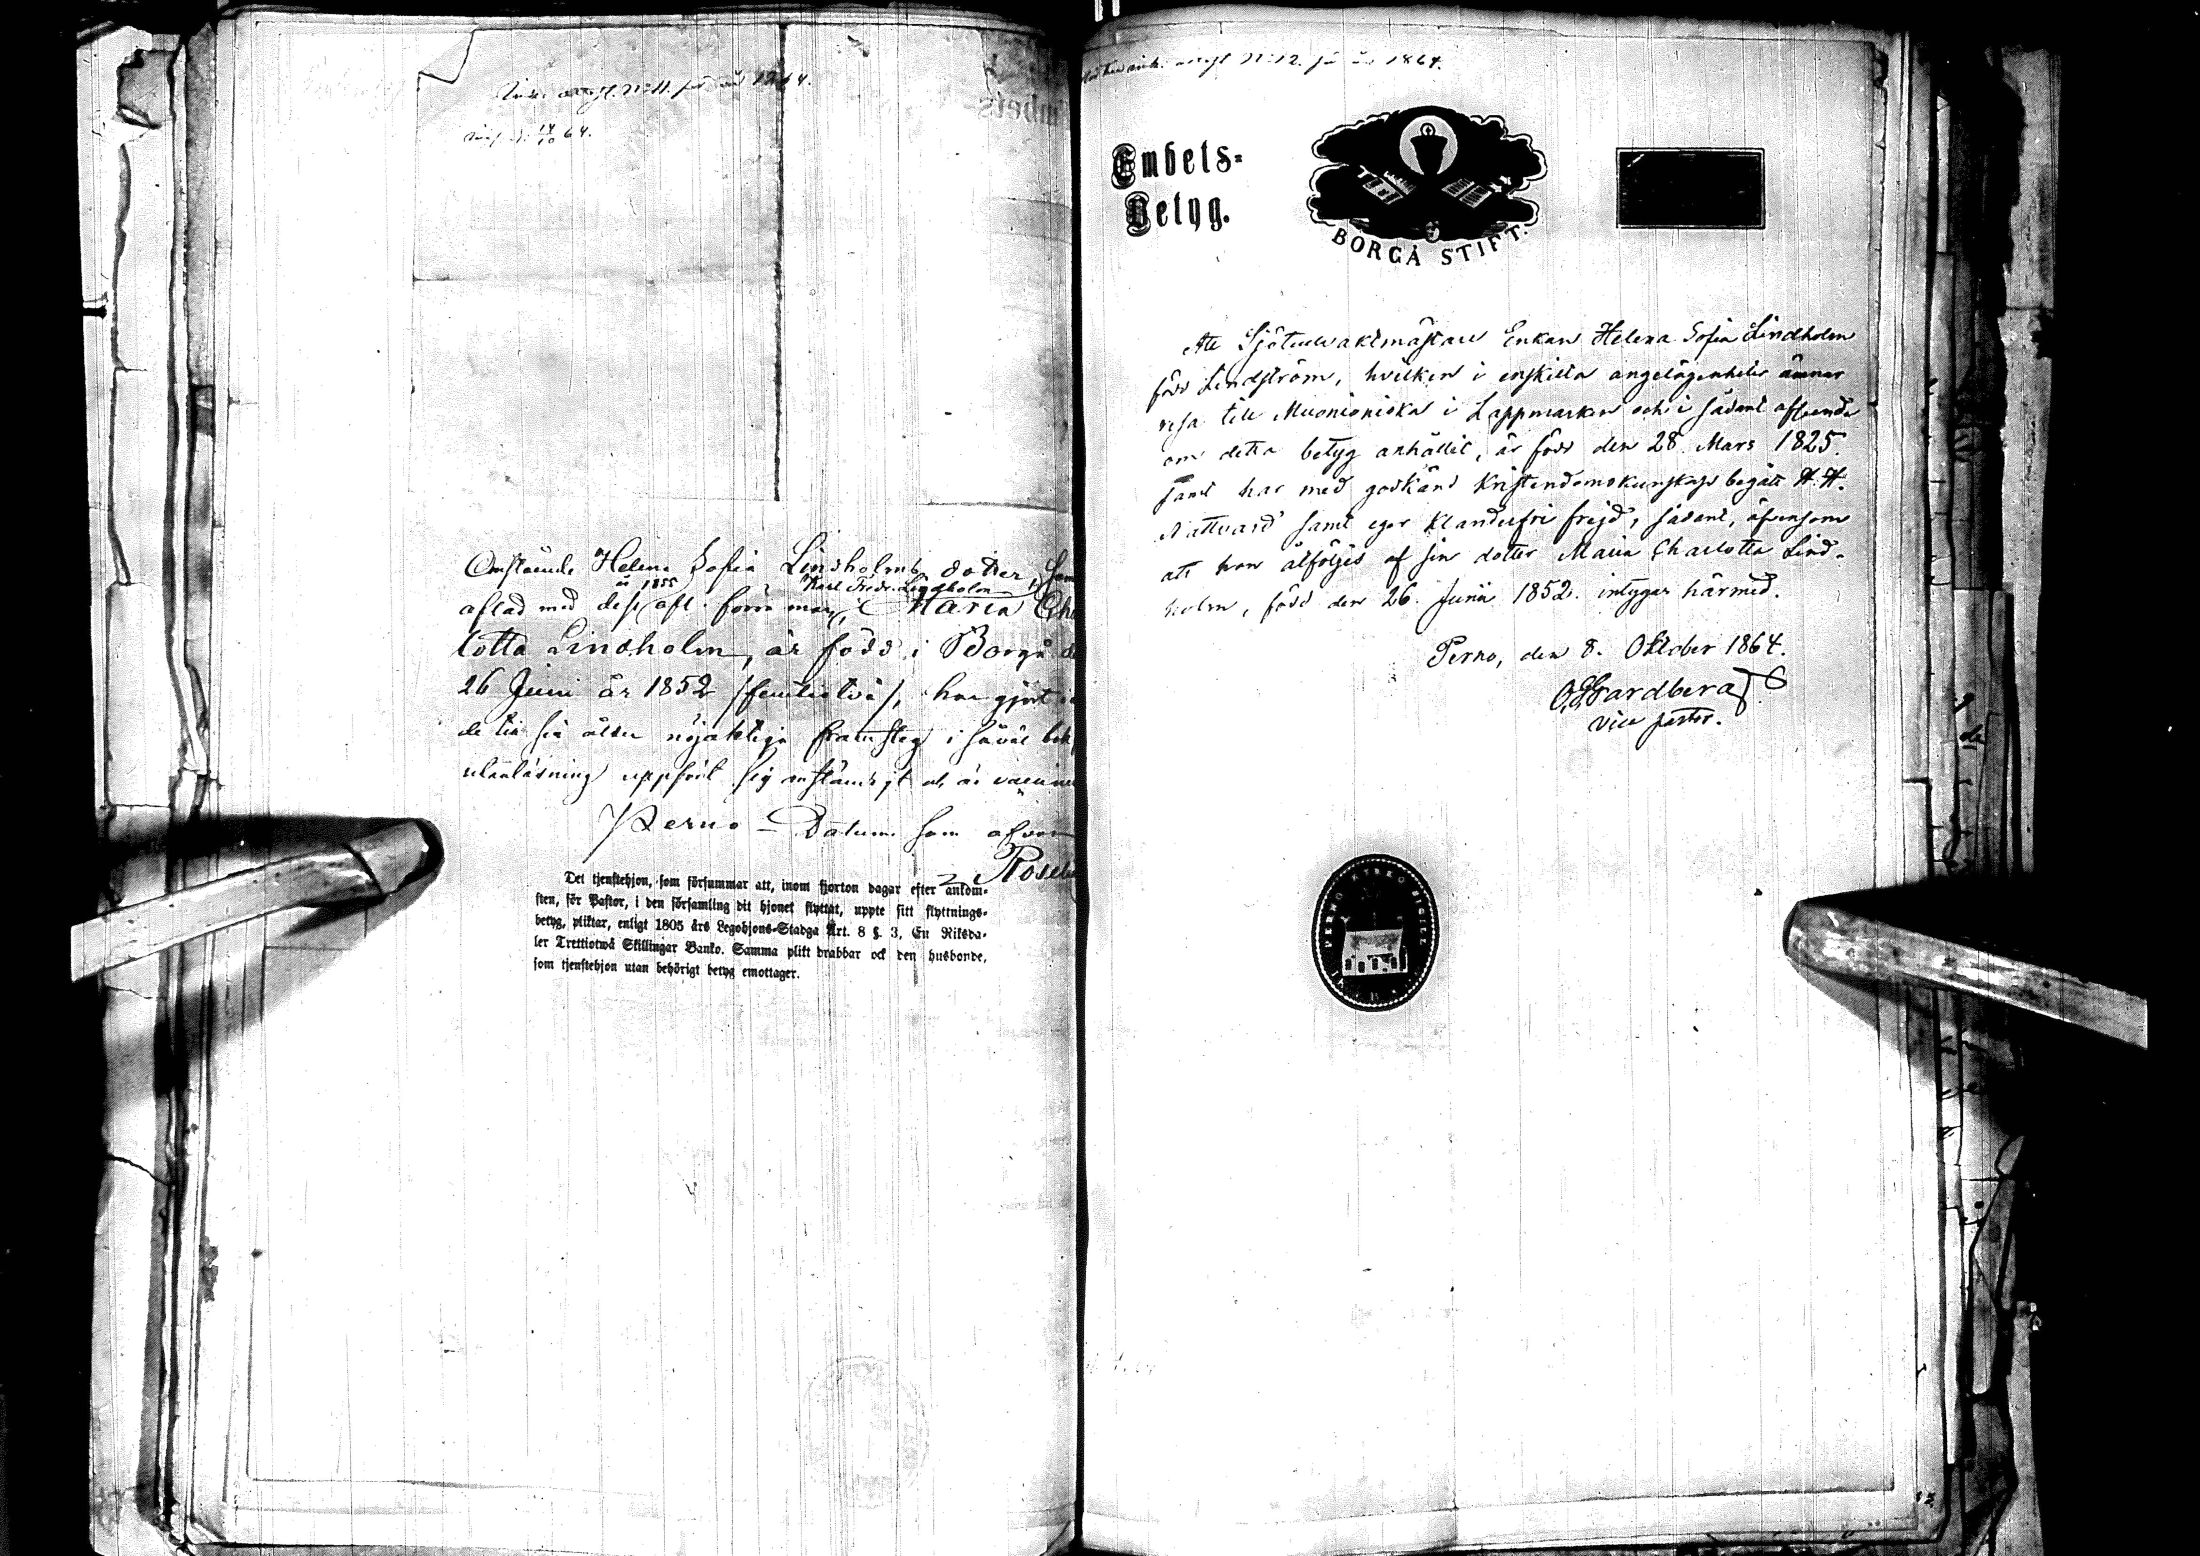 för år 1864.
14/10 64.
Omstående Helena Sofia Lindholms dotter, som
år 1855 Karl Fredr. Lindholm
aflad med dess afl. förra man, Maria Cha
lotta Lindholm, är född i Borgå d
26 Juni år 1852 /femtiotvå/, har gjort
de till sin ålder nöjaktiga framsteg i såväl bok
utanläsning uppfört sig anständigt och är vaccine
Perno Datum som ofvan
Det tjenstehjon, som försummar att, inom fjorton dagar efter ankom-
sten, för Pastor, i den församling dit hjonet flyttat, uppte sitt flyttnings-
betyg, pliktar, enligt 1805 års Legohjons-Stadga Art. 8 §. 3, En Riksda-
ler Trettiotwå Skillingar Banko. Samma plikt drabbar ock den husbonde,
som tjenstehjon utan behörigt betyg emottager.
N:12. för år 1864.
Embets-
Betyg.
BORGÅ STIFT.
Att Sjötullvaktmästare Enkan Helena Sofia Lindholm
född Lindström, hvilken i enskilta angelägenheter ämnar
resa till Muonioniska i Lappmarken och i sådant afseende
om detta betyg anhållit, är född den 28 Mars 1825.
samt har med godkänd Kristendomskunskap begått H. H.
Nattvard samt eger klanderfri frejd; sådant, äfvensom
att hon åtföljes af sin dotter Maria Charlotta Lind-
holm, född den 26. Junii 1852. intygar härmed.
Perno, den 8. Oktober 1864.
Gardberg
vice pastor.
PERNO KYRKO SIGILL